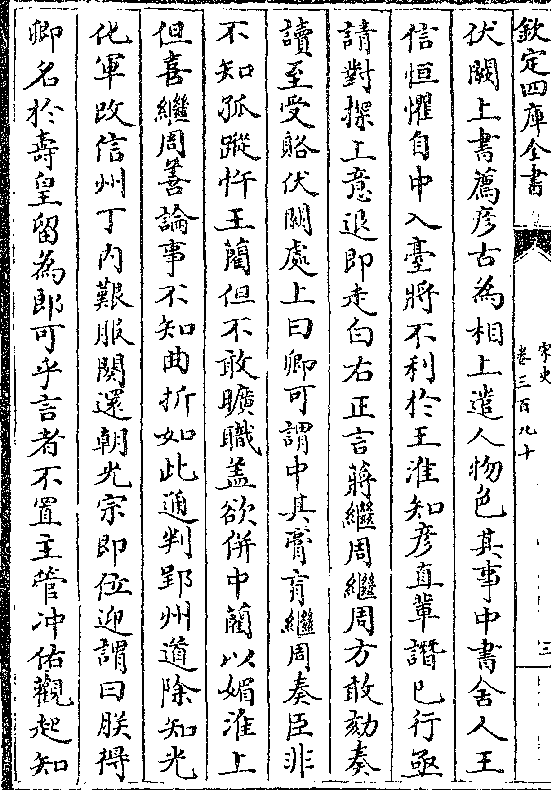 欽定四庫全書
宋史
卷三百九十
三
伏闕上書薦彦古為相上遣人物色其事中書舍人王
信恒懼自中入臺將不利於王淮知彦直輩譖已行亟
請對探上意退即走白右正言蔣繼周繼周方敢劾奏
讀至受賂伏闕處上曰卿可謂中其膏肓繼周奏臣非
不知孤蹤忤王藺但不敢曠職盖欲併中藺以媚淮上
但喜繼周善論事不知曲折如此通判郢州道除知光
化軍改信州丁內艱服闋還朝光宗即位迎謂曰朕得
卿名於壽皇留為郎可乎言者不置主管冲佑觀起知